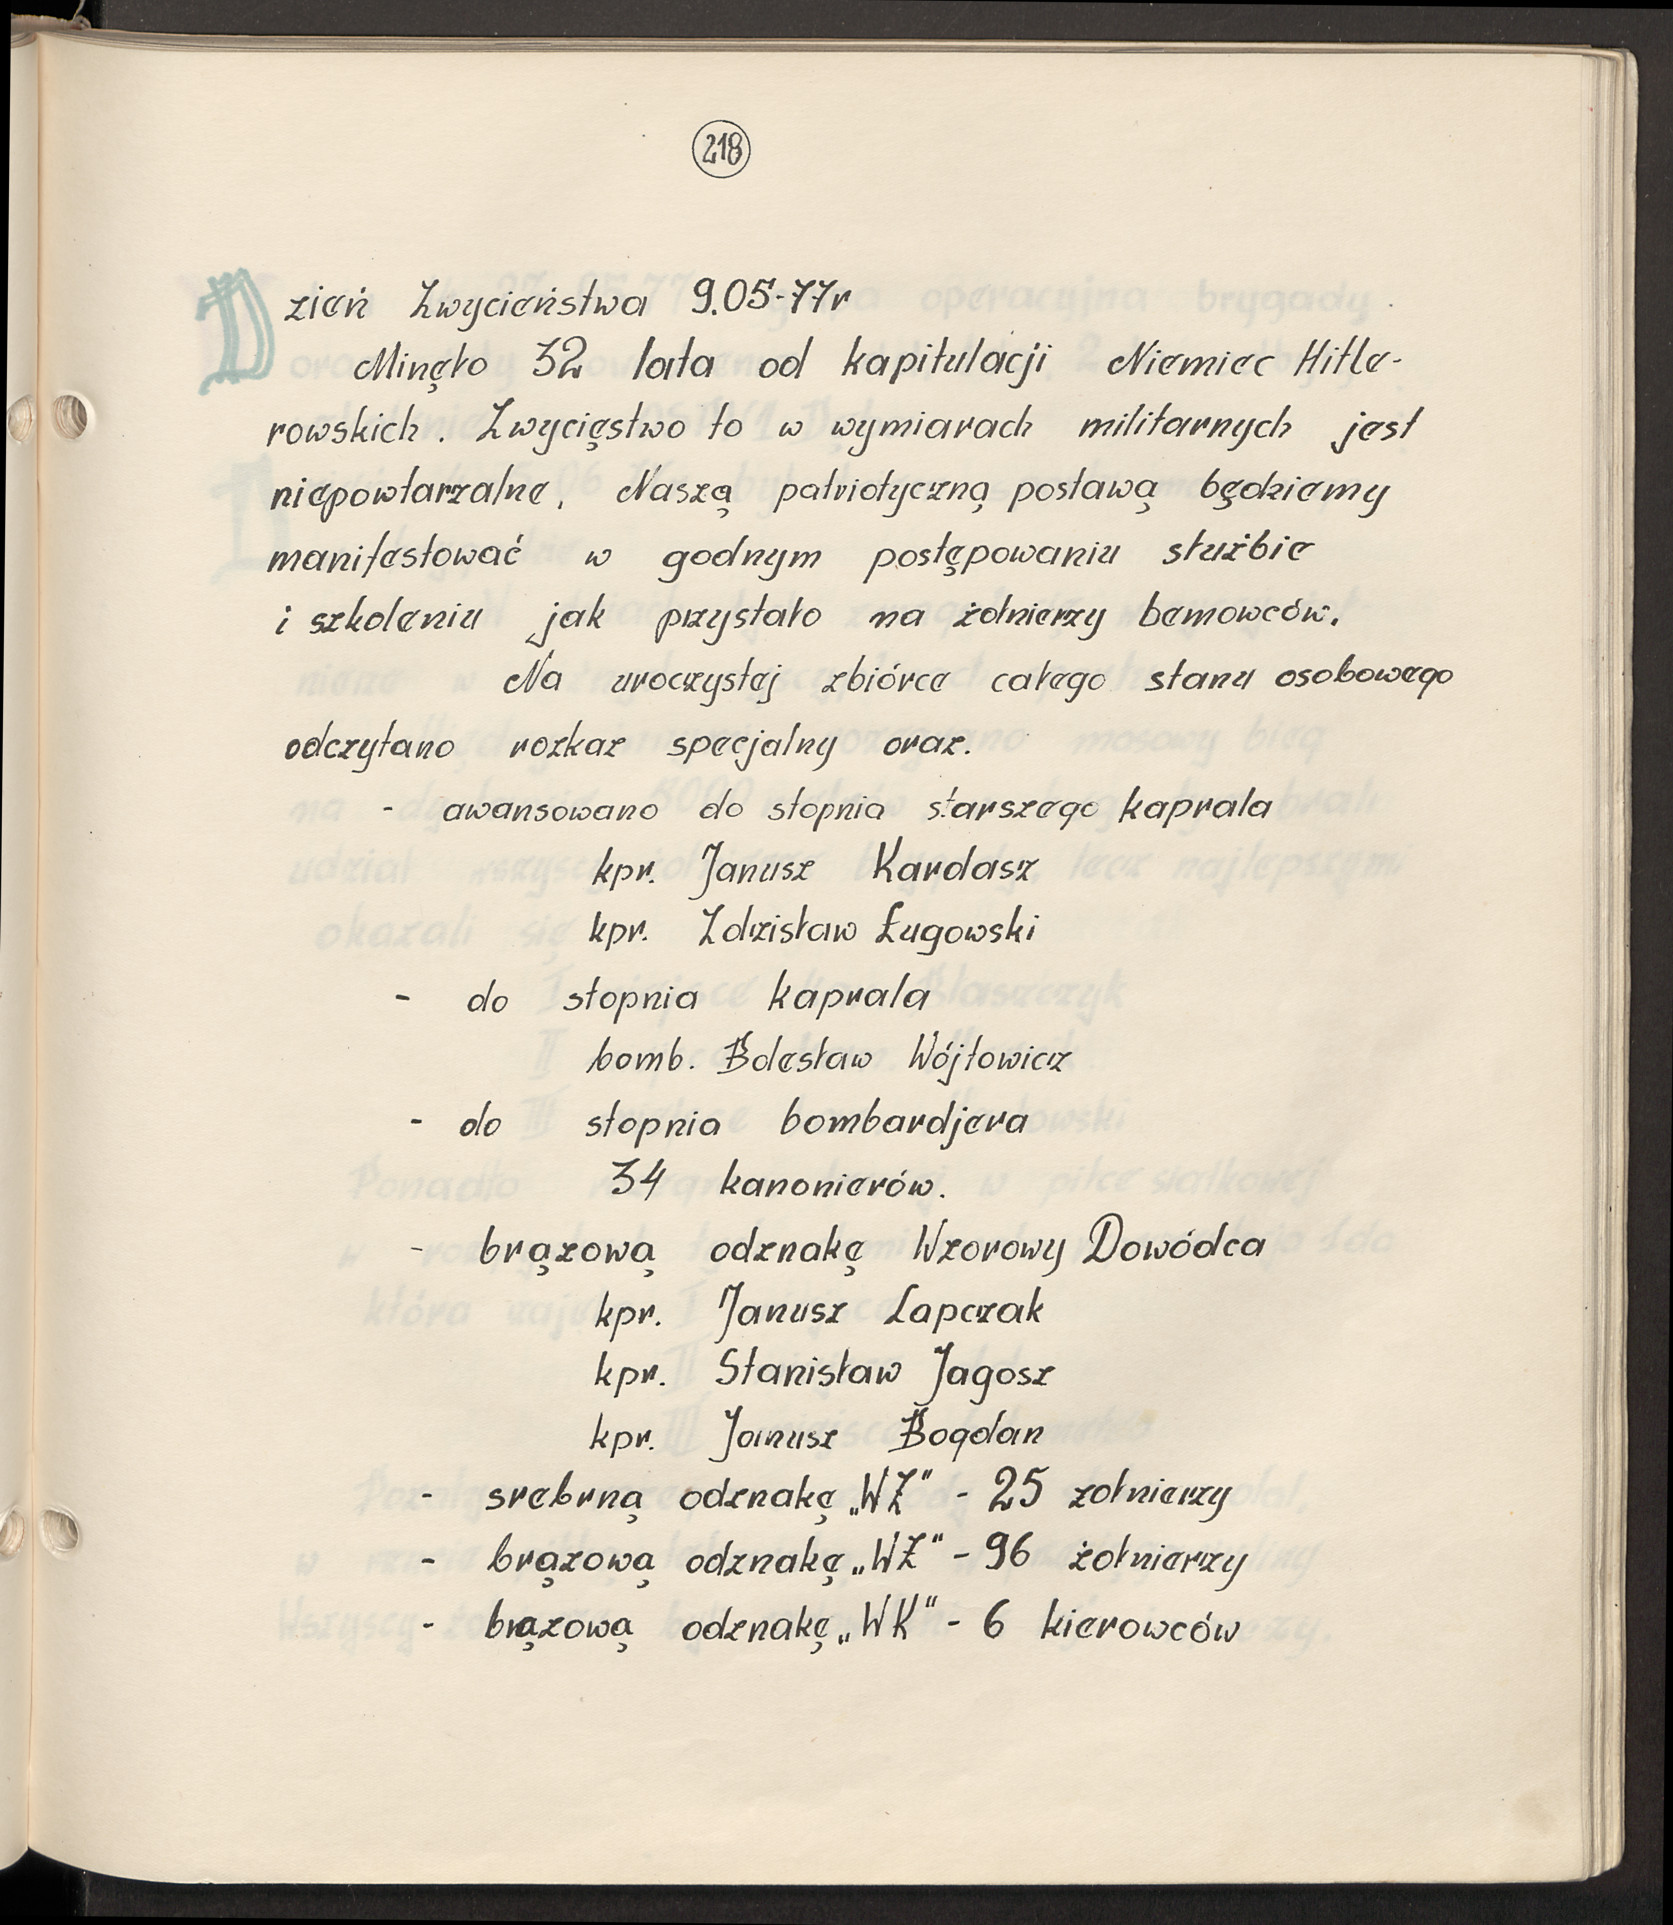 218
Dzień Zwycieństwa 9.05-77r
Minęło 32 lata od kapitulacji Niemiec Hitle-
rowskich. Zwycięstwo to w wymiarach militarnych jest
niepowtarzalne, Naszą patriotyczną postawą będziemy
manifestować w godnym postępowaniu służbie
i szkoleniu jak przystało na żołnierzy bemowców.
Na uroczystej zbiórce całego stanu osobowego
odczytano rozkaz specjalny oraz.
- awansowano do stopnia starszego kaprala
kpr. Janusz Kardasz
kpr. Zdzisław Ługowski
- do stopnia kaprala
bomb. Bolesław Wójtowicz
- do stopnia bombardjera
34 kanonierów.
- brązową odznakę Wzorowy Dowódca
kpr. Janusz Łapczak
kpr. Stanisław Jagosz
kpr. Janusz Bogdan
- srebrną odznakę „WŻ" - 25 zołnierzy
- brązową odznakę „WŻ" - 96 żołnierzy
- brązową odznakę „WK" - 6 kierowców